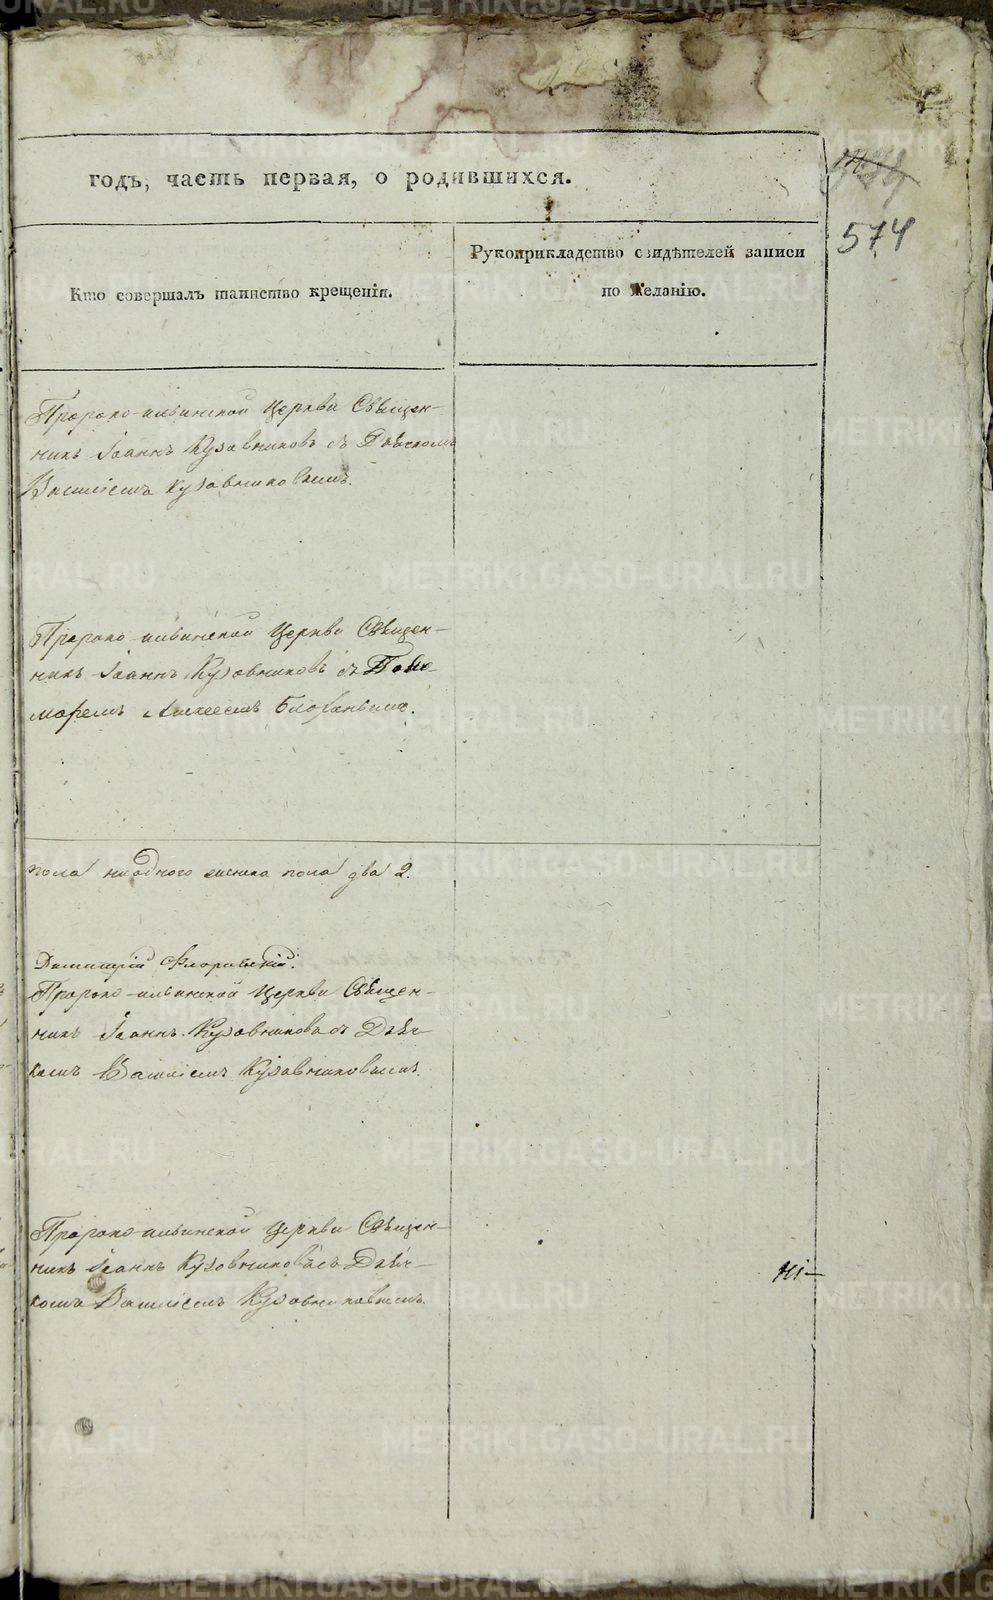 годъ, часть первая, о родившихся.
574
Кто совершалъ таинство крещенія.
Рукоприкладство свидѣтелей записи
по желанію.
Пророко-ильинской Церкви Священ-
никъ Іоаннъ Кузовниковъ съ Дьячкомъ
Василіемъ Кузовниковымъ.
Пророко-ильинской Церкви Священ-
никъ Іоаннъ Кузовниковъ съ Поно-
маремъ Алексеемъ
пола ниодного женска пола два 2.
Димитрій Флоровскій.
Пророко-ильинской Церкви Священ-
никъ Іоаннъ Кузовниковъ съ Дьяч-
комъ Василіемъ Кузовниковымъ.
Пророко-ильинской Церкви Священ-
никъ Іоаннъ Кузовниковъ съ Дьяч-
комъ Василіемъ Кузовниковымъ.
METRIKI.GASO-URAL.RU